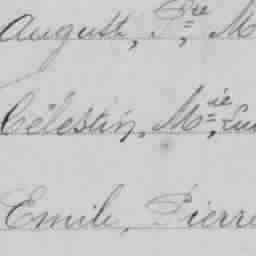 August, Pre, M
Célestin, Mie, Lu
Emile, Pierre